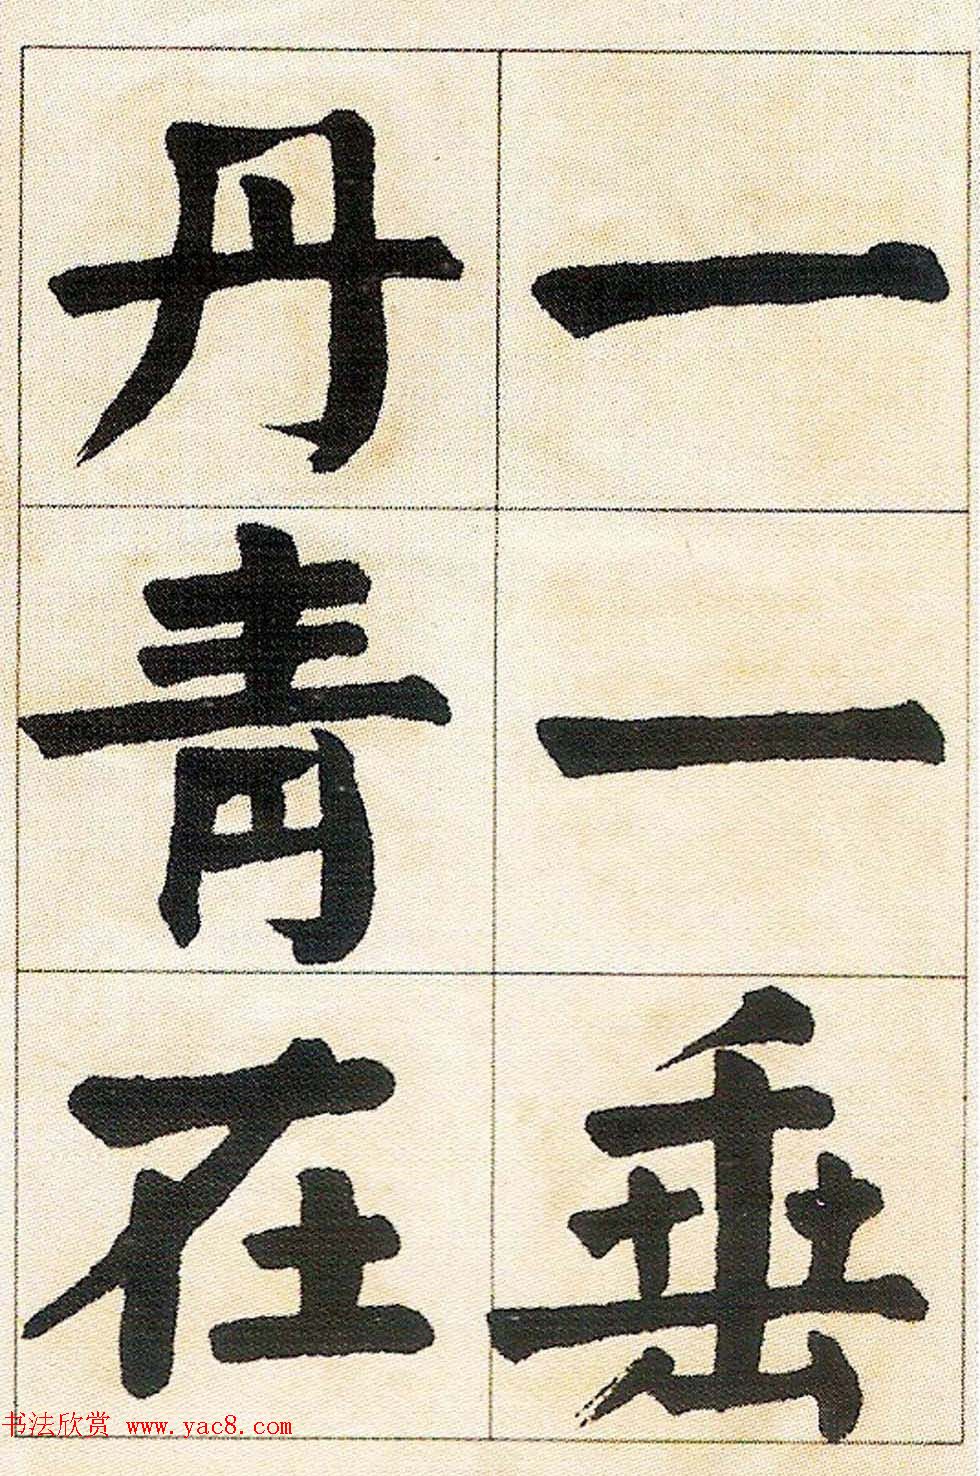 一一垂
丹青在
书法欣赏 www.yac8.com